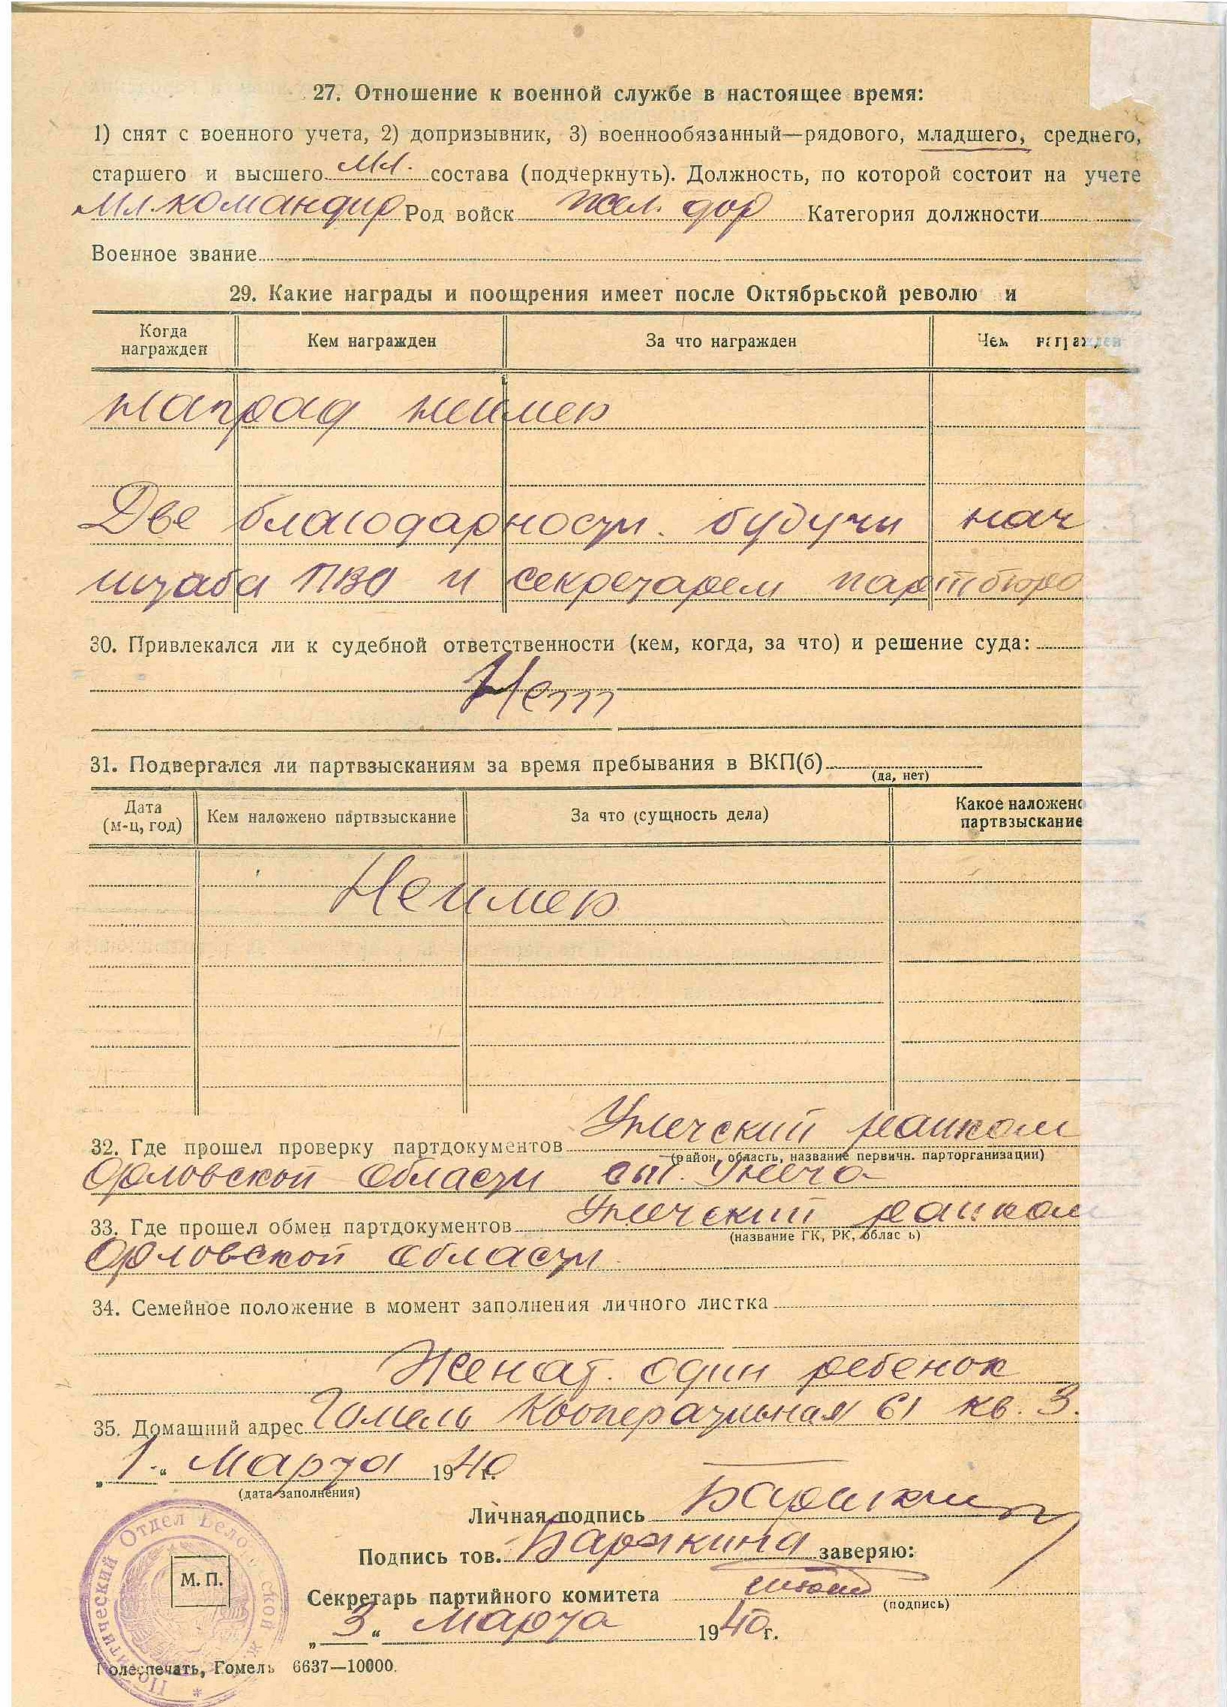 27. Отношение к военной службе в настоящее время:
1) снят с военного учета, 2) допризывник, 3) военнообязанный—рядового, младшего, среднего,
старшего и высшего мл. состава (подчеркнуть). Должность, по которой состоит на учете
Мл.командир Род войск Жел. дор Категория должности
Военное звание
29. Какие награды и поощрения имеет после Октябрьской револю и
Когда награжден Кем награжден За что награжден Чем награжден
Наград неимею
Две благодарности. будучи нач
штаба ПВО и секретарем партбюро
30. Привлекался ли к судебной ответственности (кем, когда, за что) и решение суда:
Нет
31. Подвергался ли партвзысканиям за время пребывания в ВКП(б)
(да, нет)
Дата (м-ц, год) Кем наложено партвзыскание За что (сущность дела) Какое наложено партвзыскание
Неимею
32. Где прошел проверку партдокументов Унечский райком
(район, область, название первичн. парторганизации)
Орловской области ст. Унеча
33. Где прошел обмен партдокументов Унечский райком
(название ГК, РК, облас ь)
Орловской области
34. Семейное положение в момент заполнения личного листка
Женат. один ребенок
35. Домашний адрес Гомель Кооперативная 61 кв. 3.
„1.“ Марта 1940 г.
(дата заполнения)
Личная подпись
Подпись тов. заверяю:
Секретарь партийного комитета
(подпись)
„3“ Марта 1940 г.
М. П.
Политический Отдел Бело ской ж.
Полеспечать, Гомель 6637—10000.